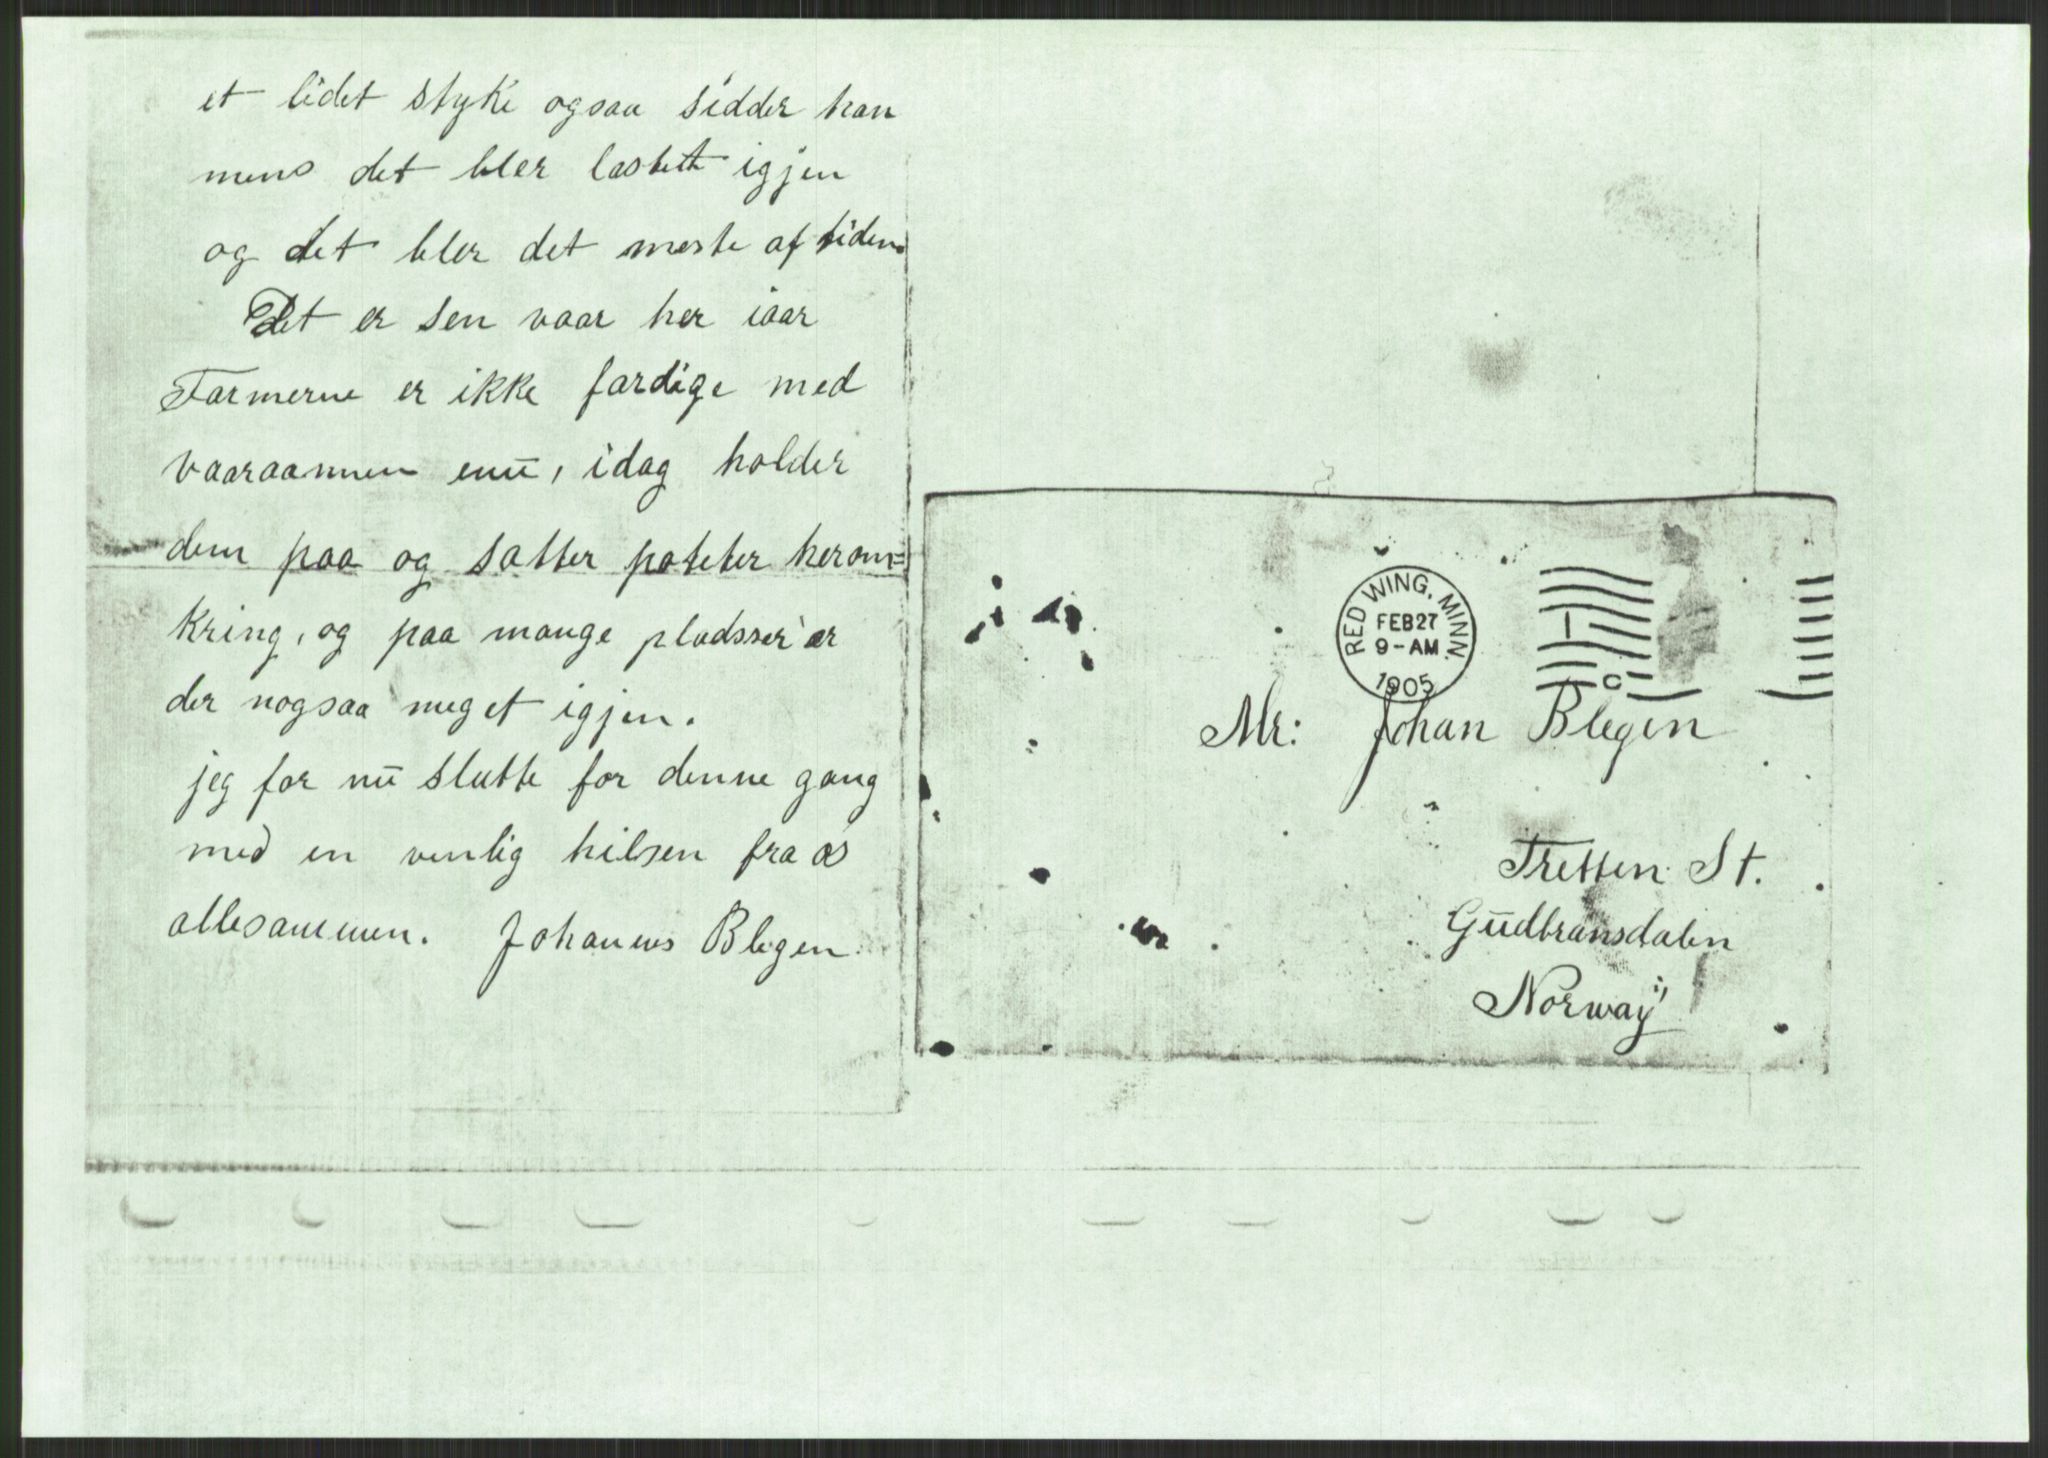 et lidet styke ogsaa sidder han
mens det bler lastett igjen
og det bler det meste af tiden.
Det er sen vaar her iaar
Farmerne er ikke færdige med
vaaraannen enū, idag holder
dem paa og sætter poteter herom=
kring, og paa mange pladsser er
der nogsaa meget igjen.
jeg for nū slutte for denne gang
med en venlig hilsen fra os
allesammen. Johannes Blegen.
RED WING, MINN.
FEB 27
9-AM
1905
Mr: Johan Blegen
Tretten St.
Gūdbransdalen
Norway